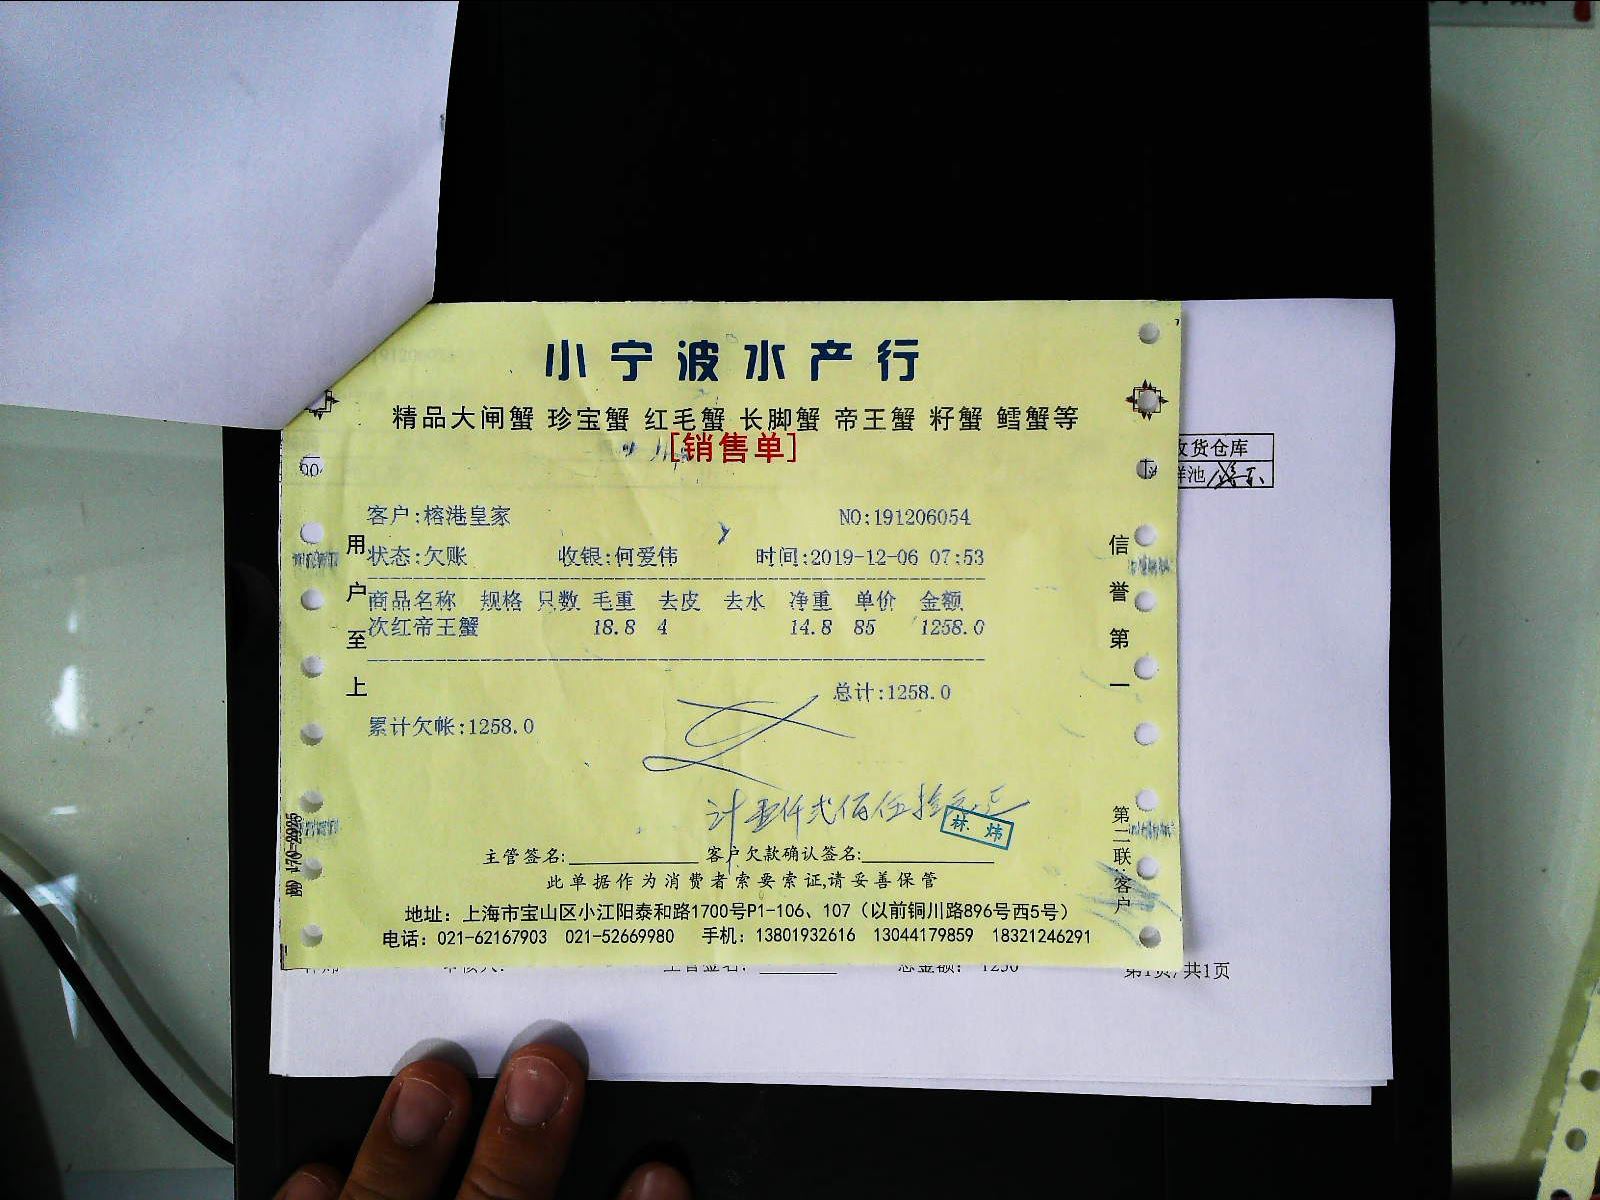 小宁波水产行
精品大闸蟹 珍宝蟹 红毛蟹 长脚蟹 帝王蟹 籽蟹 鳕蟹等
[销售单]
收货仓库
鲜池
客户:榕港皇家 NO:191206054
状态:欠账 收银:何爱伟 时间:2019-12-06 07:53
商品名称 规格 只数 毛重 去皮 去水 净重 单价 金额
次红帝王蟹 18.8 4 14.8 85 1258.0
总计:1258.0
累计欠帐:1258.0
用户至上
信誉第一
计壹仟弍佰伍拾
林炜
第二联:客户
主管签名: 客户欠款确认签名:
此单据作为消费者索要索证,请妥善保管
地址：上海市宝山区小江阳泰和路1700号P1-106、107（以前铜川路896号西5号）
电话：021-62167903 021-52669980 手机：13801932616 13044179859 18321246291
审核人: 主管签名: 总金额: 1250 第1页/共1页